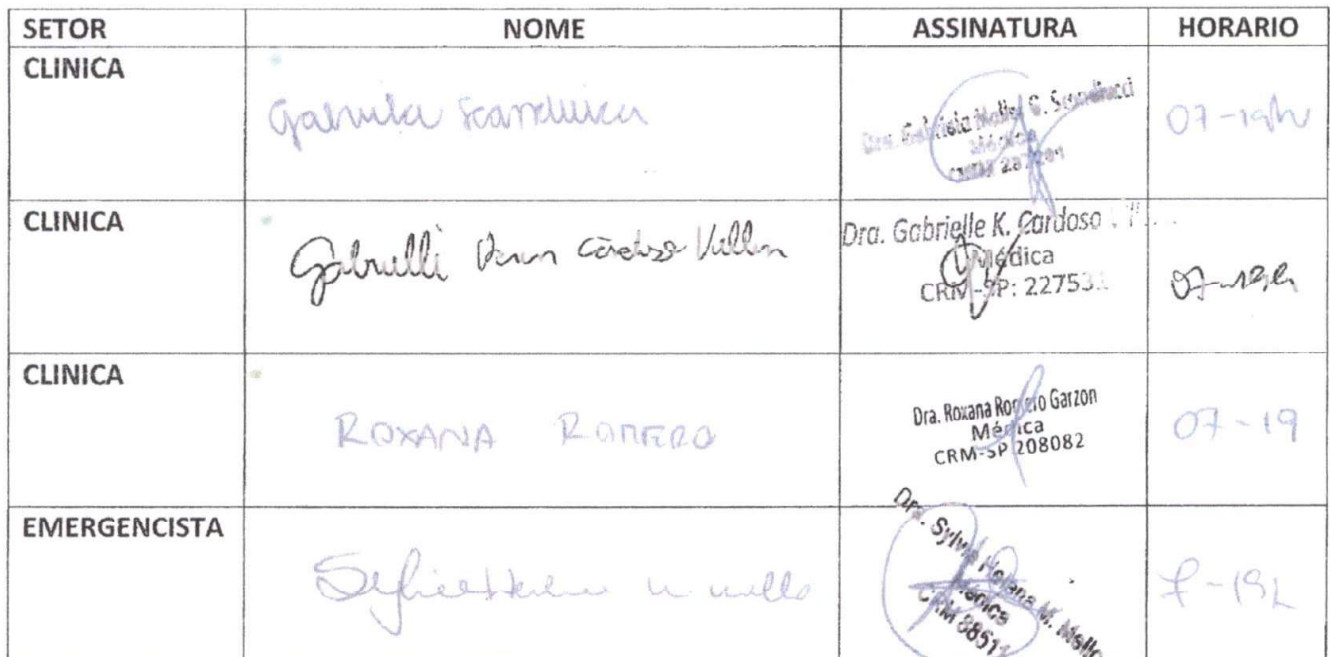 SETOR NOME ASSINATURA HORARIO
CLINICA
Gabriela Scanduca
Dra. Gabriela C. Scanduci
Médica
CRM 237291
07-19h
CLINICA
Gabrielli Cardoso Villa
Dra. Gabrielle K. Cardoso
Médica
CRM-SP: 22753
07-19h
CLINICA
ROXANA ROMERO
Dra. Roxana Romero Garzon
Médica
CRM-SP 208082
07-19
EMERGENCISTA
Sylvia Helena M Mello
Dra. Sylvia Helena M. Mello
Médica
CRM 8851
7-19h